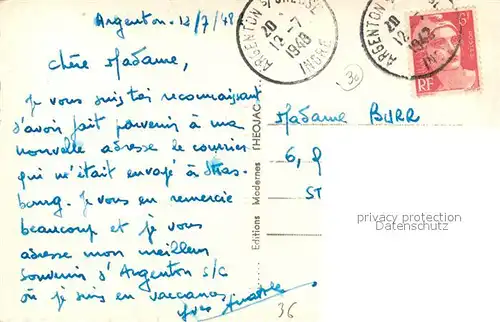 Argenton - 12/7/48
Chère Madame,
Je vous suis très reconnaissant
d'avoir fait parvenir à ma
nouvelle adresse le courrier
qui m'était envoyé à Stras-
bourg. Je vous en remercie
beaucoup et je vous
adresse mon meilleur
souvenir d'Argenton s/C
où je suis en vacances
Yves
ARGENTON S/CREUSE
20
12-7
1948
INDRE
ARGENTON S/
20
12
1948
IND
RF
30
Madame BURR
6,
ST
Editions Modernes THEOJAC
privacy protection
Datenschutz
36